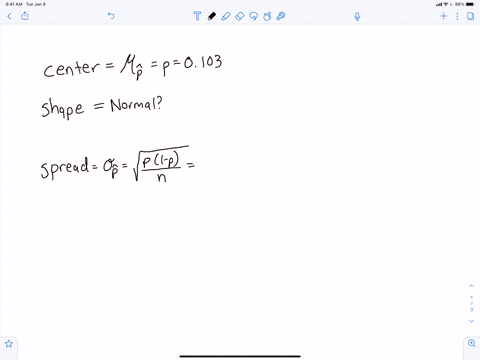 9:41 AM Tue Jan 9
86%
center = μ_p̂ = p = 0.103
shape = Normal?
spread = σ_p̂ = √(p(1-p)/n) =
1
/
3